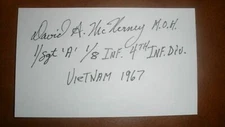 David H. McNerney M.O.H.
1/Sgt 'A' 1/8 Inf. 4TH Inf. Div.
VIETNAM 1967